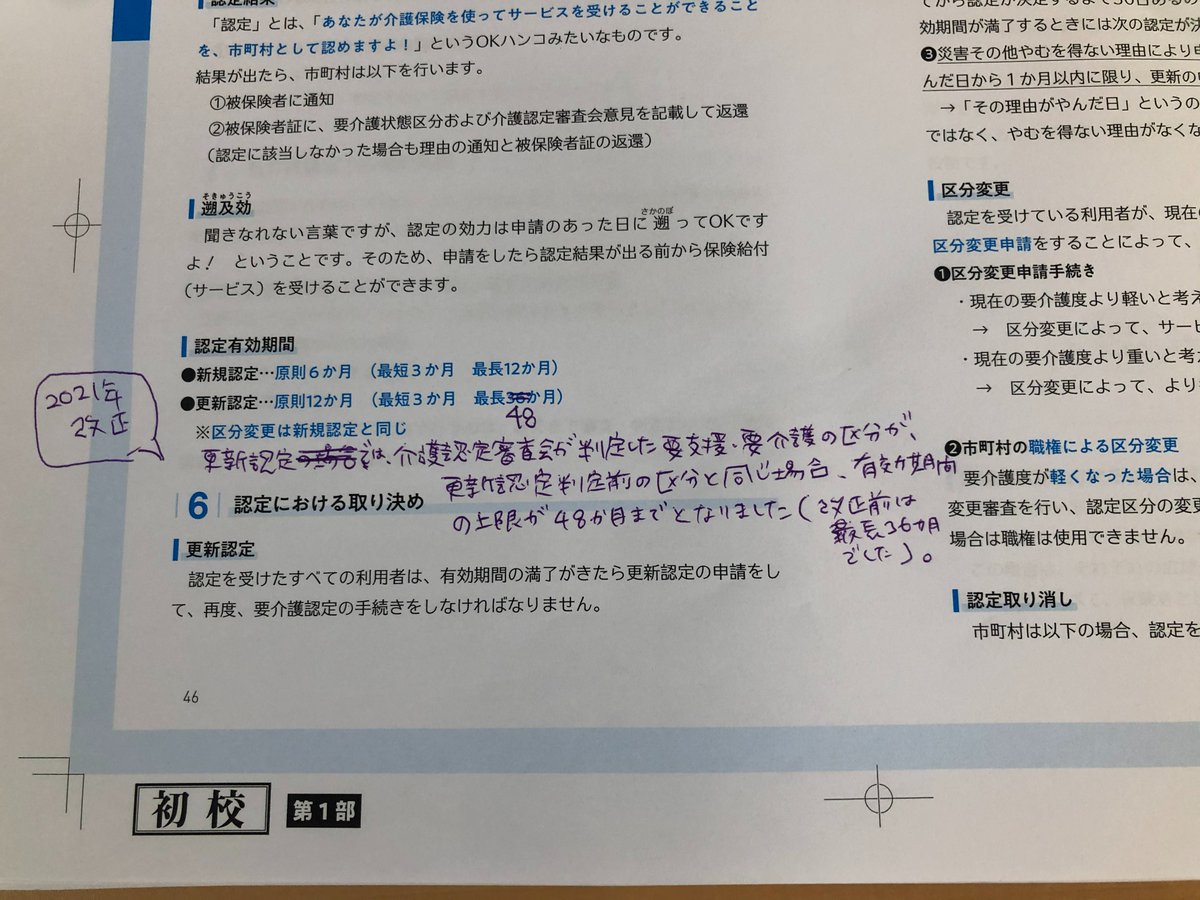 認定結果
「認定」とは、「あなたが介護保険を使ってサービスを受けることができること
を、市町村として認めますよ！」というOKハンコみたいなものです。
結果が出たら、市町村は以下を行います。
①被保険者に通知
②被保険者証に、要介護状態区分および介護認定審査会意見を記載して返還
（認定に該当しなかった場合も理由の通知と被保険者証の返還）
そきゅうこう
遡及効
さかのぼ
聞きなれない言葉ですが、認定の効力は申請のあった日に遡ってOKです
よ！　ということです。そのため、申請をしたら認定結果が出る前から保険給付
（サービス）を受けることができます。
認定有効期間
●新規認定…原則６か月　（最短３か月　最長12か月）
●更新認定…原則12か月　（最短３か月　最長36か月）
48
※区分変更は新規認定と同じ
2021年
改正
更新認定では、介護認定審査会が判定した要支援・要介護の区分が、
更新認定判定前の区分と同じ場合、有効期間
の上限が48か月までとなりました（改正前は
最長36か月
でした）。
6　認定における取り決め
更新認定
認定を受けたすべての利用者は、有効期間の満了がきたら更新認定の申請をし
て、再度、要介護認定の手続きをしなければなりません。
46
初校
第１部
効期間が満了するときには次の認定が決
❸災害その他やむを得ない理由により申
んだ日から１か月以内に限り、更新の
→「その理由がやんだ日」というの
ではなく、やむを得ない理由がなくな
区分変更
認定を受けている利用者が、現在の
区分変更申請をすることによって、
❶区分変更申請手続き
・現在の要介護度より軽いと考え
→　区分変更によって、サービ
・現在の要介護度より重いと考
→　区分変更によって、より
❷市町村の職権による区分変更
要介護度が軽くなった場合は、
変更審査を行い、認定区分の変更
場合は職権は使用できません。
認定取り消し
市町村は以下の場合、認定を